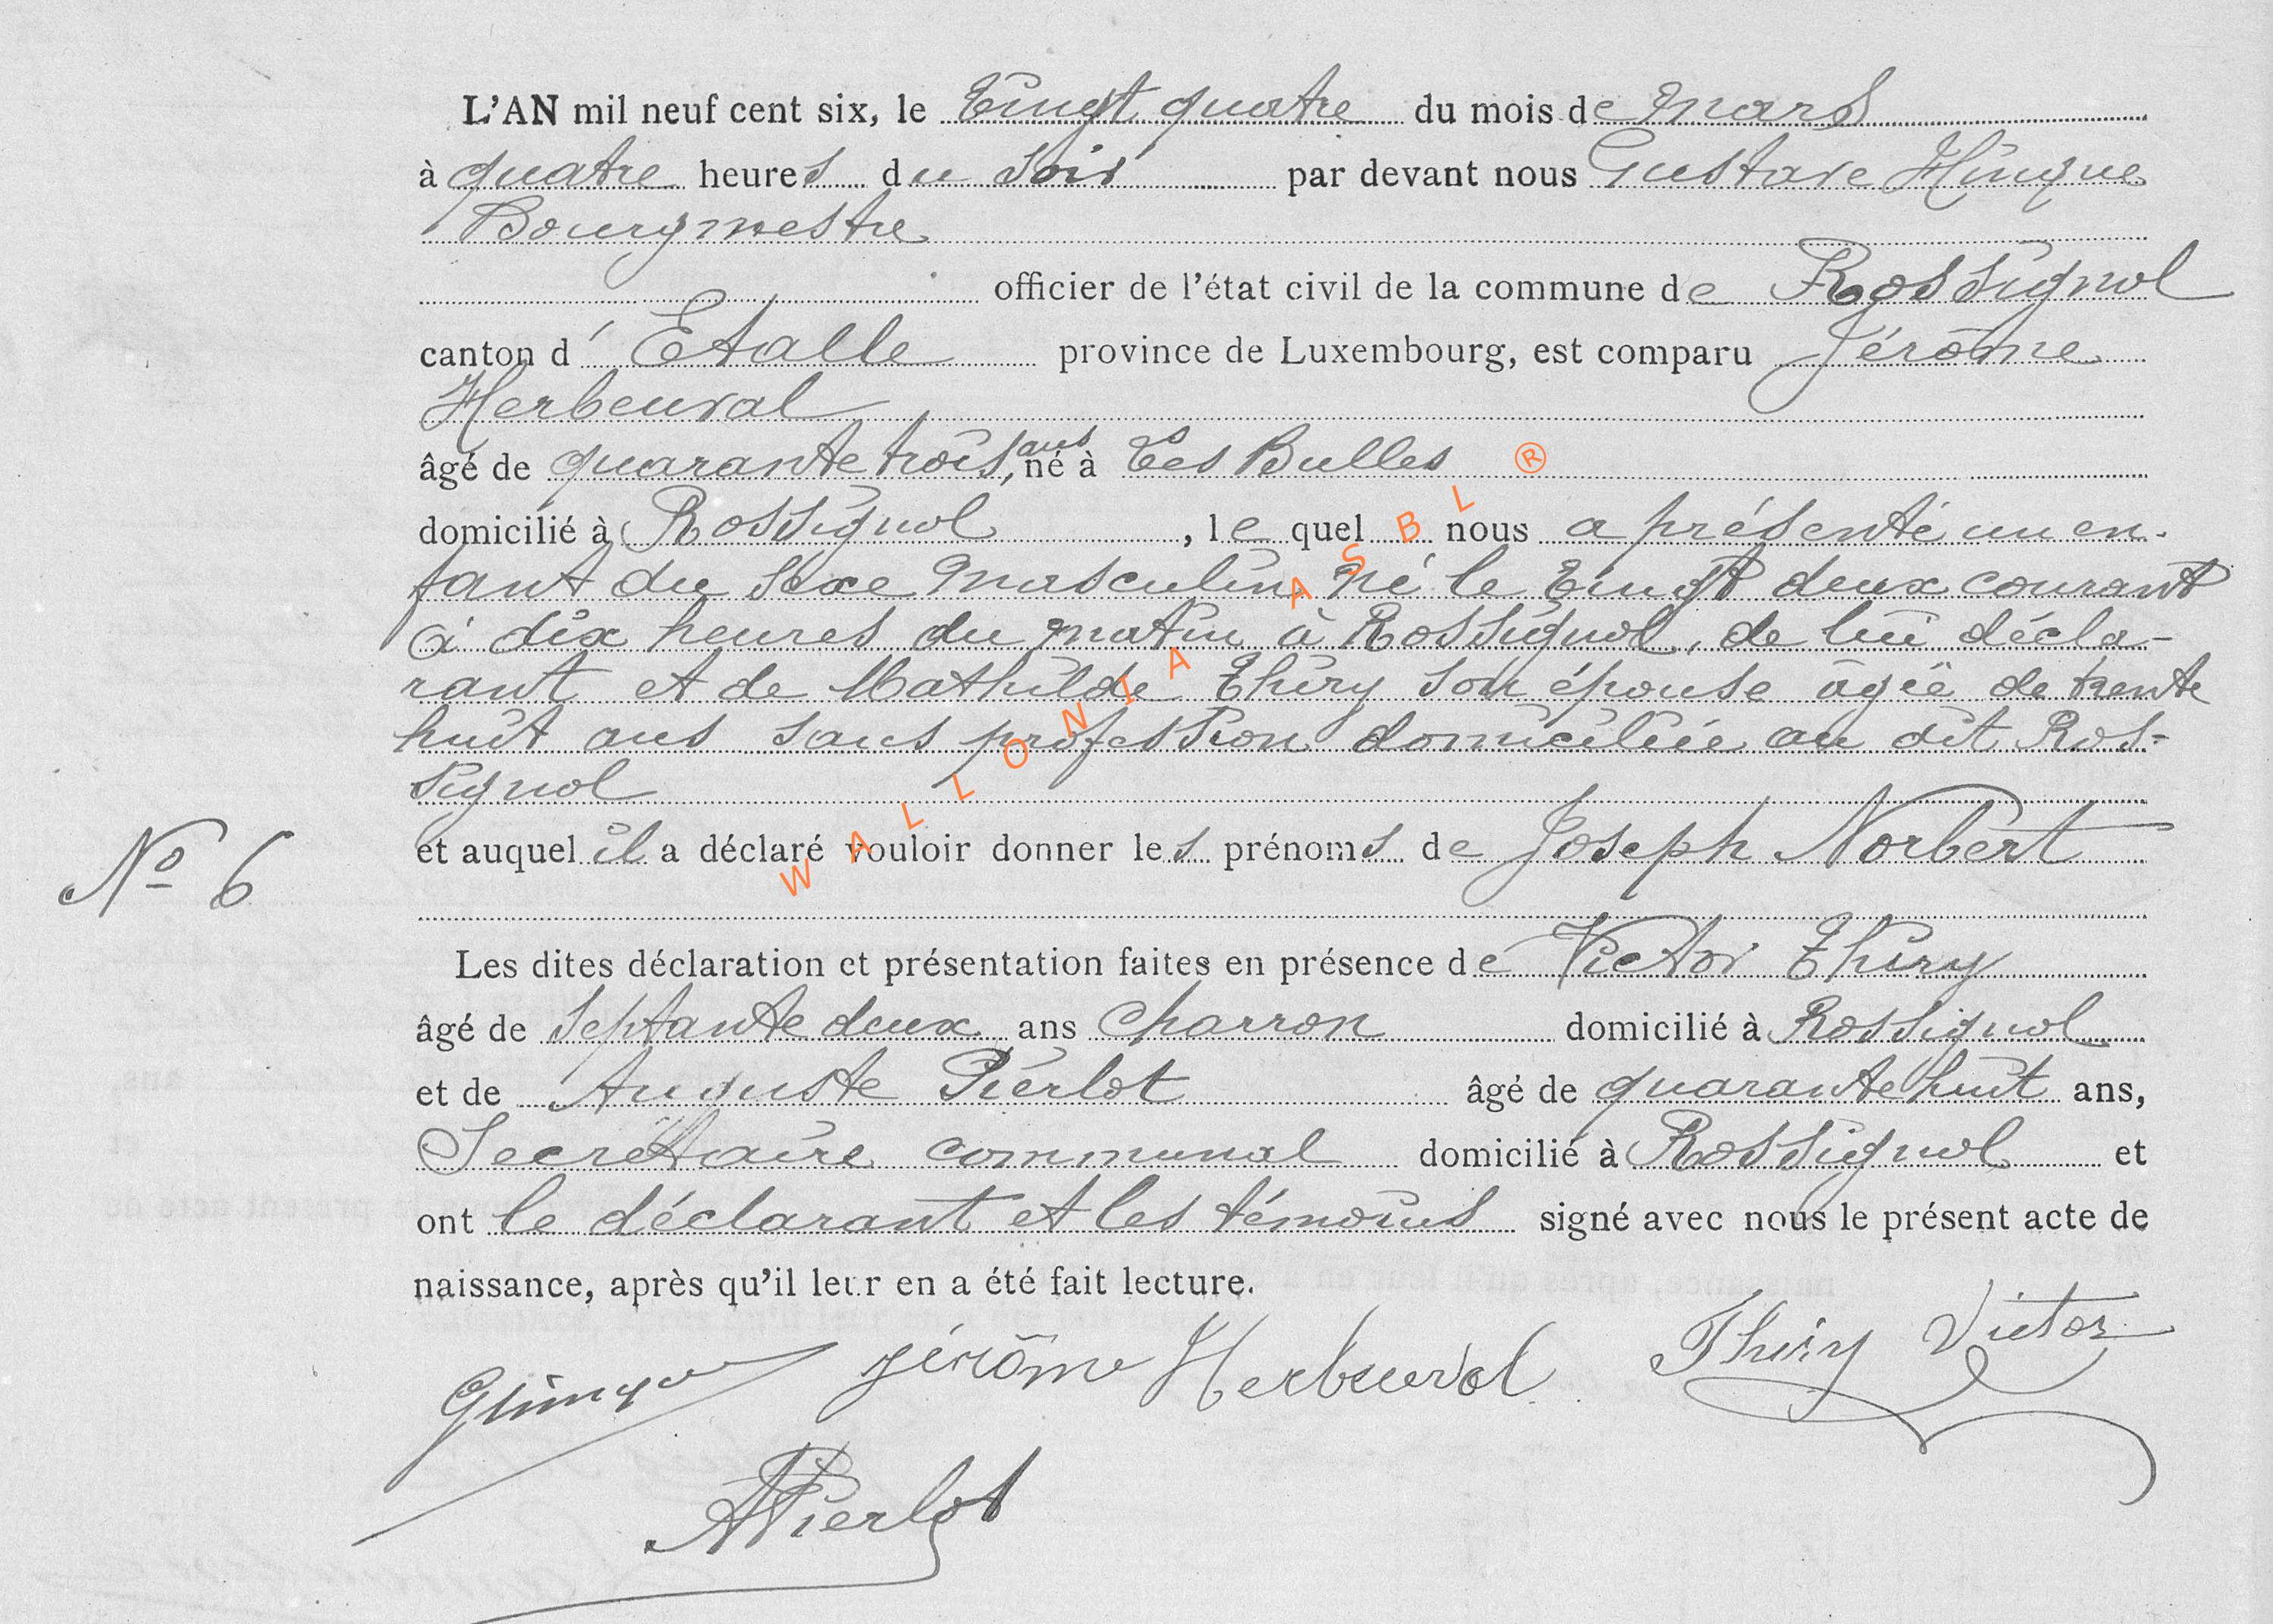 L'AN mil neuf cent six, le Vingt quatre du mois de Mars
à quatre heures du soir par devant nous Gustave Hinque
Bourgmestre
officier de l'état civil de la commune de Rossignol
canton d' Etalle province de Luxembourg, est comparu Jérôme
Herbeuval
âgé de quarante trois, ans né à Les Bulles ®
domicilié à Rossignol, le quel nous a présenté un en-
fant du sexe Masculin né le vingt deux courant
à dix heures du matin à Rossignol, de lui décla-
rant et de Mathilde Thiry son épouse âgée de trente
huit ans sans profession domiciliée au dit Ros-
signol
No 6
et auquel il a déclaré vouloir donner les prénoms de Joseph Norbert
Les dites déclaration et présentation faites en présence de Victor Thiry
âgé de septante deux ans charron domicilié à Rossignol
et de Auguste Pierlot âgé de quarante huit ans,
Secrétaire communal domicilié à Rossignol et
ont le déclarant et les témoins signé avec nous le présent acte de
naissance, après qu'il leur en a été fait lecture.
GHinque Jérôme Herbeuval Thiry Victor
APierlot
WALLONIA ASBL